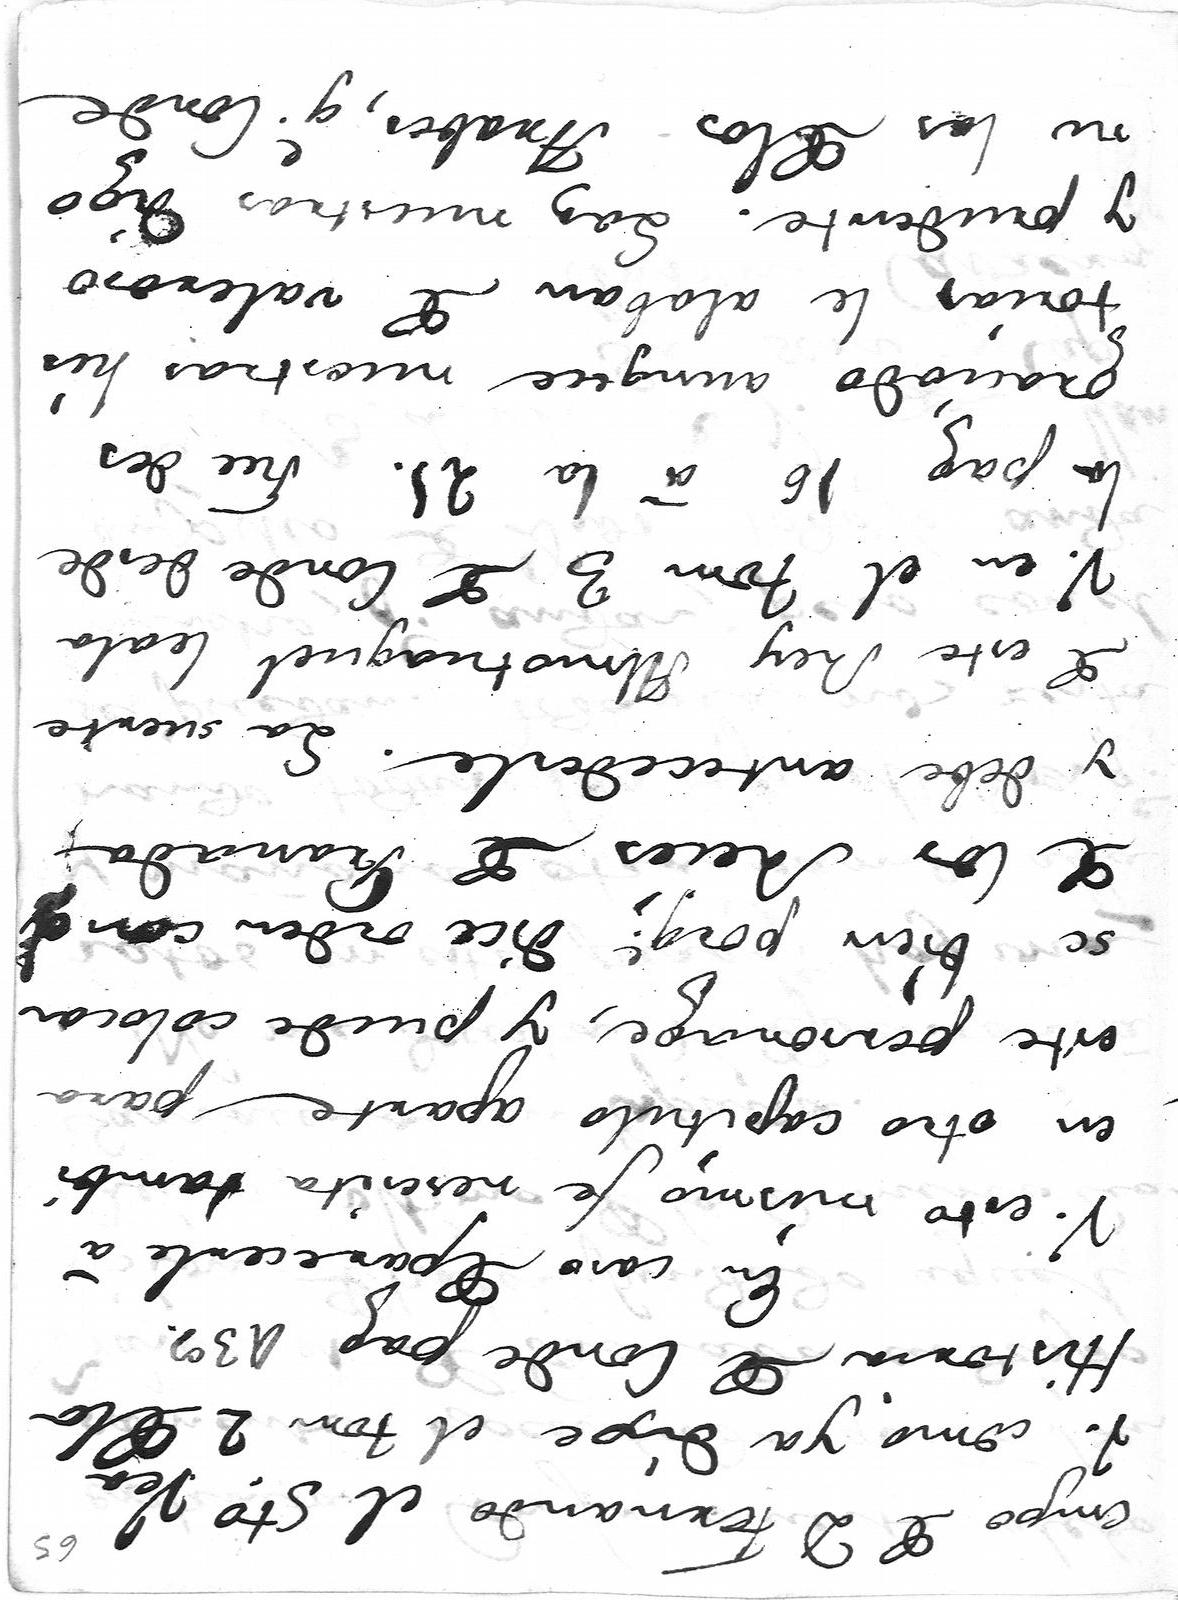 65
empo de D Fernando el Sto. Vea
V. como ya dige el tom 2 de la
Historia de Conde pag 139.
En caso de parecerle à
V. esto mismo, se necesita tambi
en otro capitulo aparte para
este personage, y puede colocar
se bien porq.e dice orden con
de los Reies de Granada,
y debe antecederle. La suerte
de este Rey Almotuaquel leala
V. en el tom 3 de Conde desde
la pag 16 à la 21. Fue des
graciado, aunque nuestras his
torias le alaban de valeroso
y prudente. Las nuestras digo
ni las de los Arabes, q.e Conde